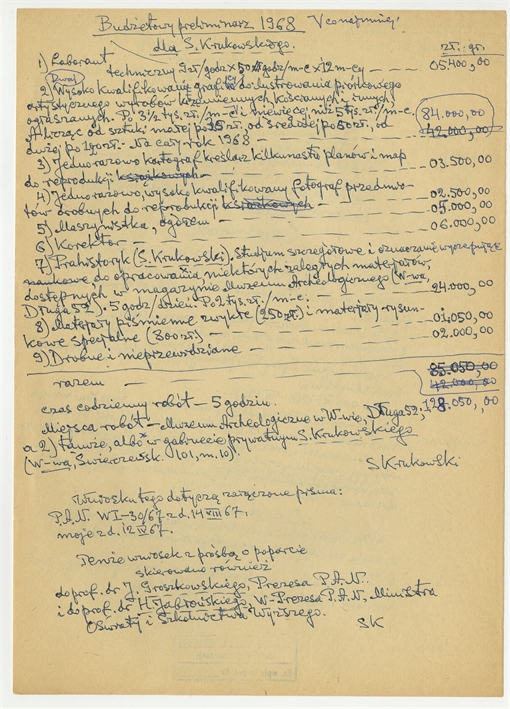 Budżetowy preliminarz 1968 Vconajmniej
dla S. Krukowskiego.
zł. gr.
1) Laborant
techniczny 9 zł/godz × 50 godz/m-c × 12 m-cy — 05400,00
Dwaj
2) Wysoko kwalifikowany grafik do ilustrowania piórkowego
artystycznego wyrobów krzemiennych, kościanych i innych,
ograniczanych. Po 3½ tys. zł/m-c i niewięcej niż 5 tys. zł/m-c. 84.000,00
A licząc od sztuki małej po 25 zł, od średniej po 50 zł, od 42.000,00
dużej po 100 zł. — Na cały rok 1968 —
3) Jednorazowo kartograf kreślacz kilkunastu planów i map
do reprodukcji książkowych — 03.500,00
4) Jednorazowo, wysoko kwalifikowany fotograf przedmio-
tów drobnych do reprodukcji książkowych — 02.500,00
5) Maszynistka, ogółem — 05.000,00
6) Korektor — 06.000,00
7) Prahistoryk (S. Krukowski). Studjum szczegółowe i oznaczanie wyczerpujące
naukowe, do opracowania niektórych zaległych materjałów,
dostępnych w magazynie Muzeum Archeologicznego (W-wa,
Długa 52). 5 godz/dzień. Po 2 tys. zł./m-c. — 24.000,00
8) Materjały piśmienne zwykłe (250 zł.) i materjały rysun-
kowe specjalne (800 zł.) — 01.050,00
9) Drobne i nieprzewidziane — 02.000,00
razem — 85.050,00
42.000,00
128.050,00
czas codziennej robót — 5 godzin.
Miejsca robót — Muzeum Archeologiczne w W-wie, Długa 52,
a 2) tamże, albo w gabinecie prywatnym S. Krukowskiego
(W-wa, Świerczewsk. 101, m. 10).
S Krukowski
Wniosku tego dotyczą załączone pisma:
P.A.N. WI-30/67 z d. 14 VIII 67.
moje z d. 12 IV 67.
Tenże wniosek z prośbą o poparcie
skierowano również
do prof. dr J. Groszkowskiego, Prezesa P.A.N.
i do prof. dr H. Jabłońskiego, W-Prezesa P.A.N., Ministra
Oświaty i Szkolnictwa Wyższego.
SK